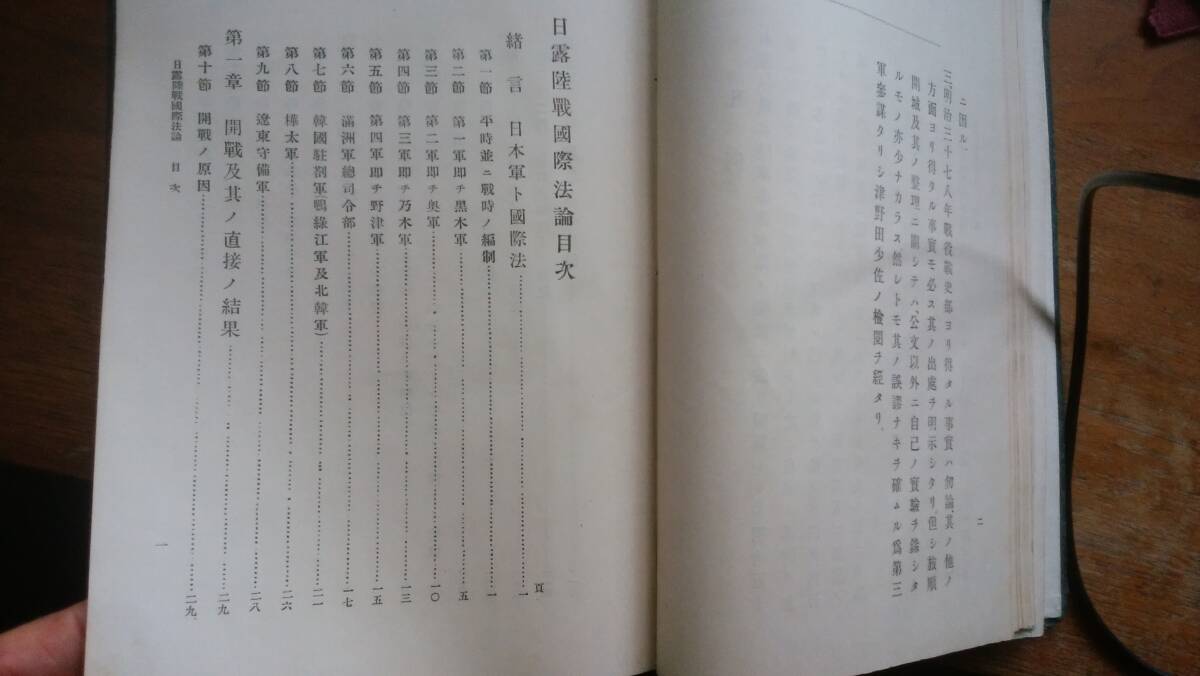 ニ因ル、
三、明治三十七八年戰役戰史部ヨリ得タル事實ハ勿論、其ノ他ノ
方面ヨリ得タル事實モ必ス其ノ出處ヲ明示シタリ、但シ旅順
開城及其ノ整理ニ關シテハ、公文以外ニ自己ノ實驗ヲ錄シタ
ルモノ亦少ナカラス、然レトモ其ノ誤謬ナキヲ確ムル爲第三
軍參謀タリシ津野田少佐ノ檢閱ヲ經タリ、
二
日露陸戰國際法論目次
頁
緖言 日本軍ト國際法……一
第一節 平時並ニ戰時ノ編制……一
第二節 第一軍即チ黑木軍……五
第三節 第二軍即チ奧軍……一〇
第四節 第三軍即チ乃木軍……一三
第五節 第四軍即チ野津軍……一五
第六節 滿洲軍總司令部……一七
第七節 韓國駐剳軍(鴨綠江軍及北韓軍)……二一
第八節 樺太軍……二六
第九節 遼東守備軍……二八
第一章 開戰及其ノ直接ノ結果……二九
第十節 開戰ノ原因……二九
日露陸戰國際法論 目次
一